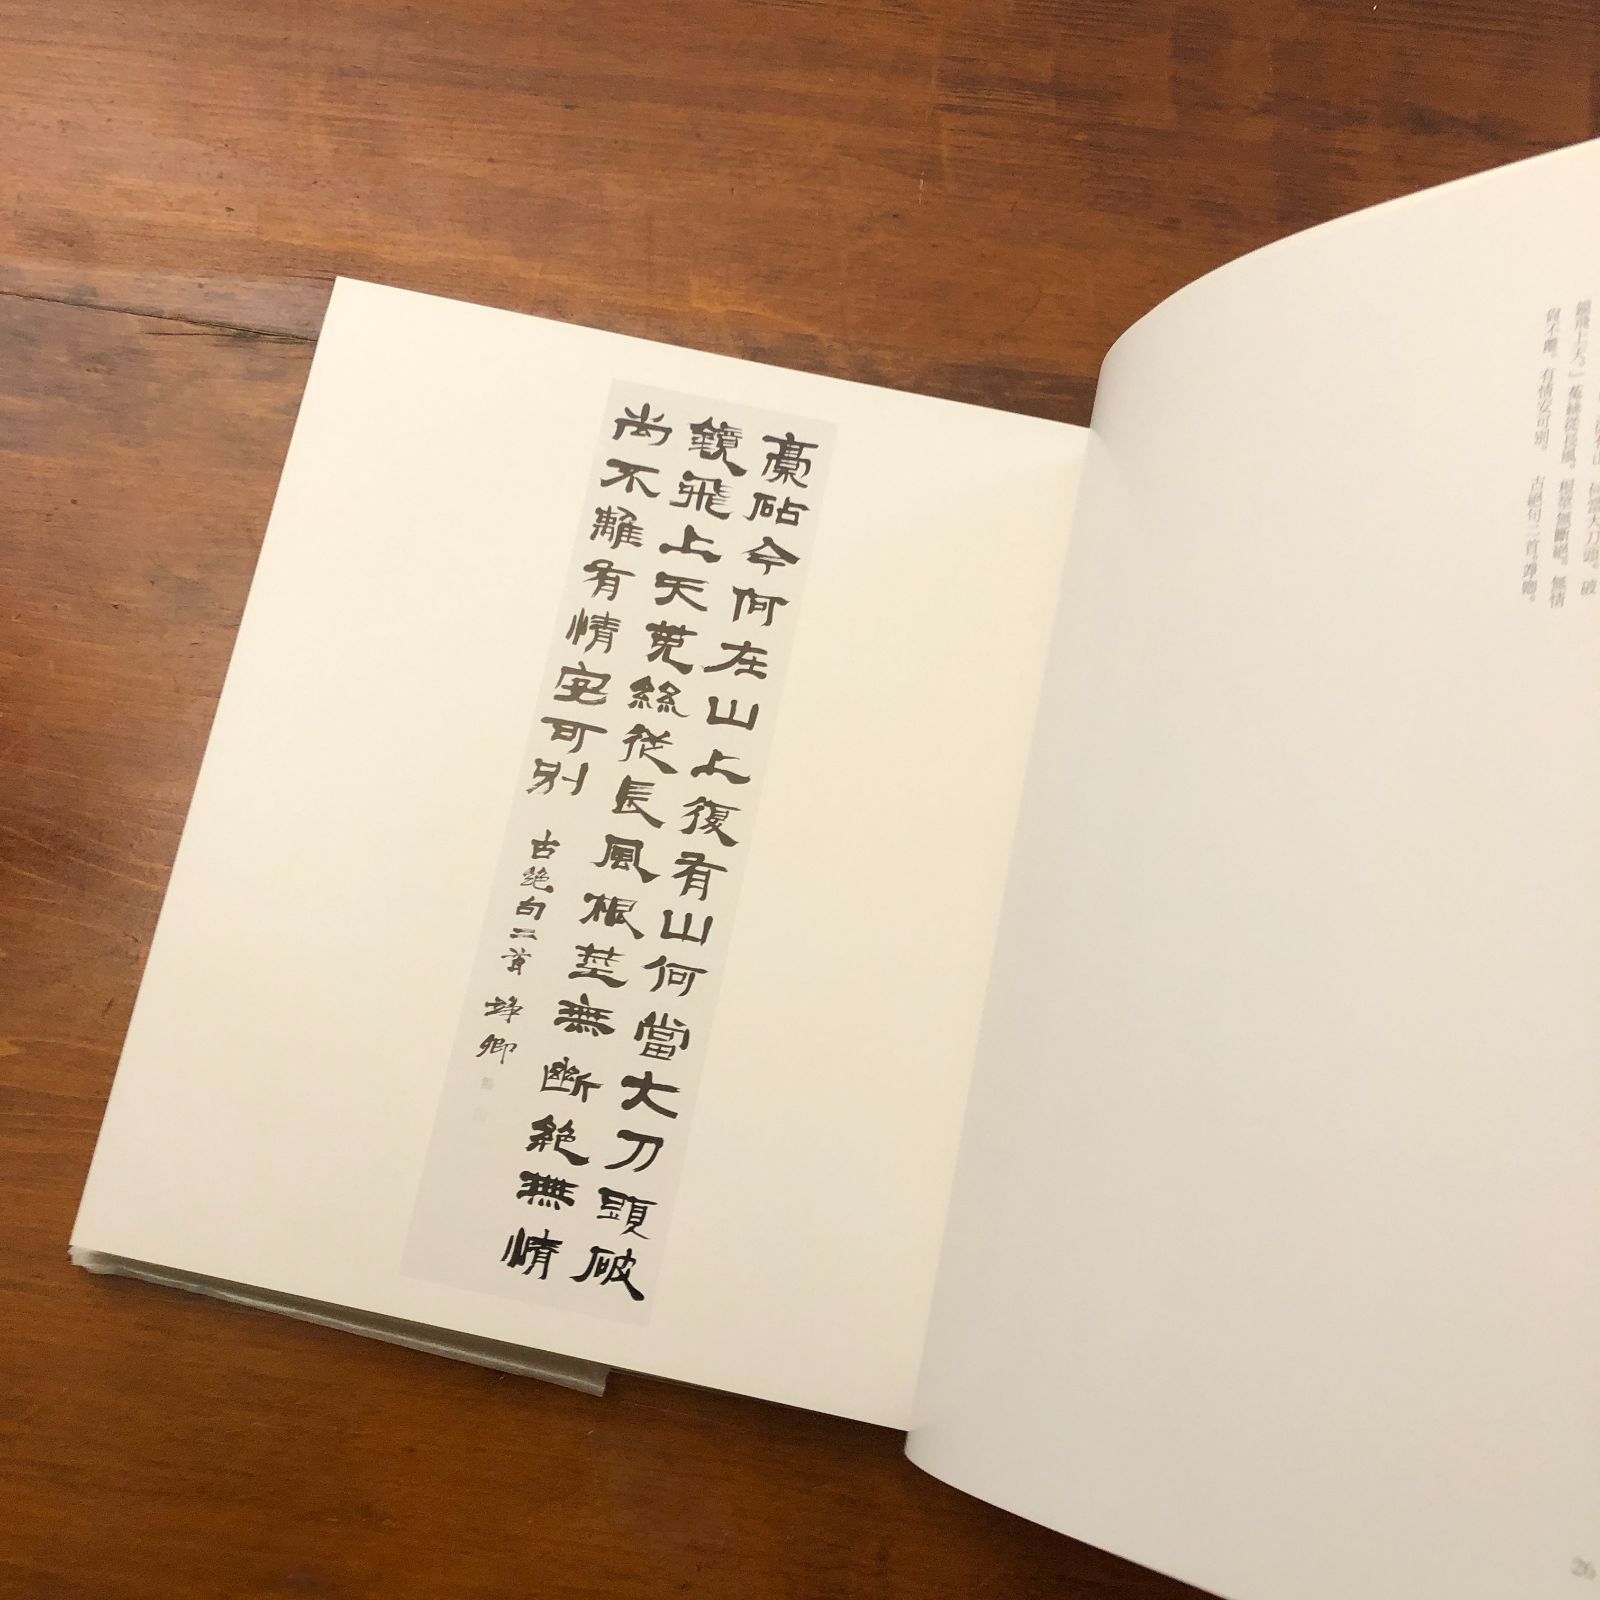 藁砧今何在山上復有山何當大刀頭破
鏡飛上天菟絲從長風根莖無斷絕無情
尚不離有情安可別
古絕句二首 竫卿
何當大刀頭。破
鏡飛上天。』菟絲從長風。根莖無斷絕。無情
尙不離。有情安可別。 古絕句二首。竫卿。
26